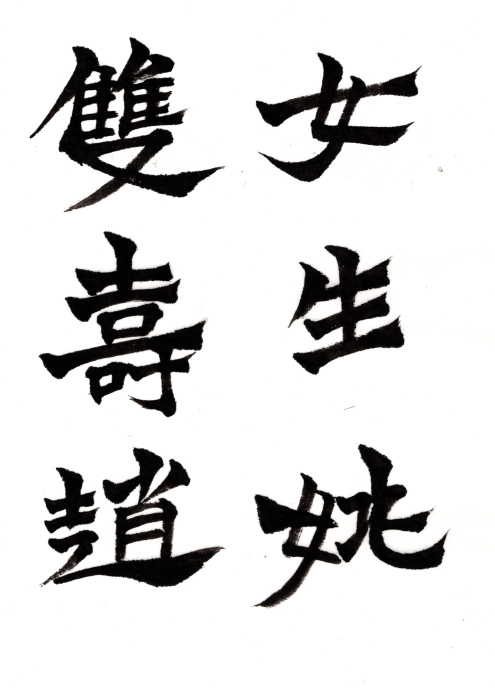 女生姚
雙壽趙